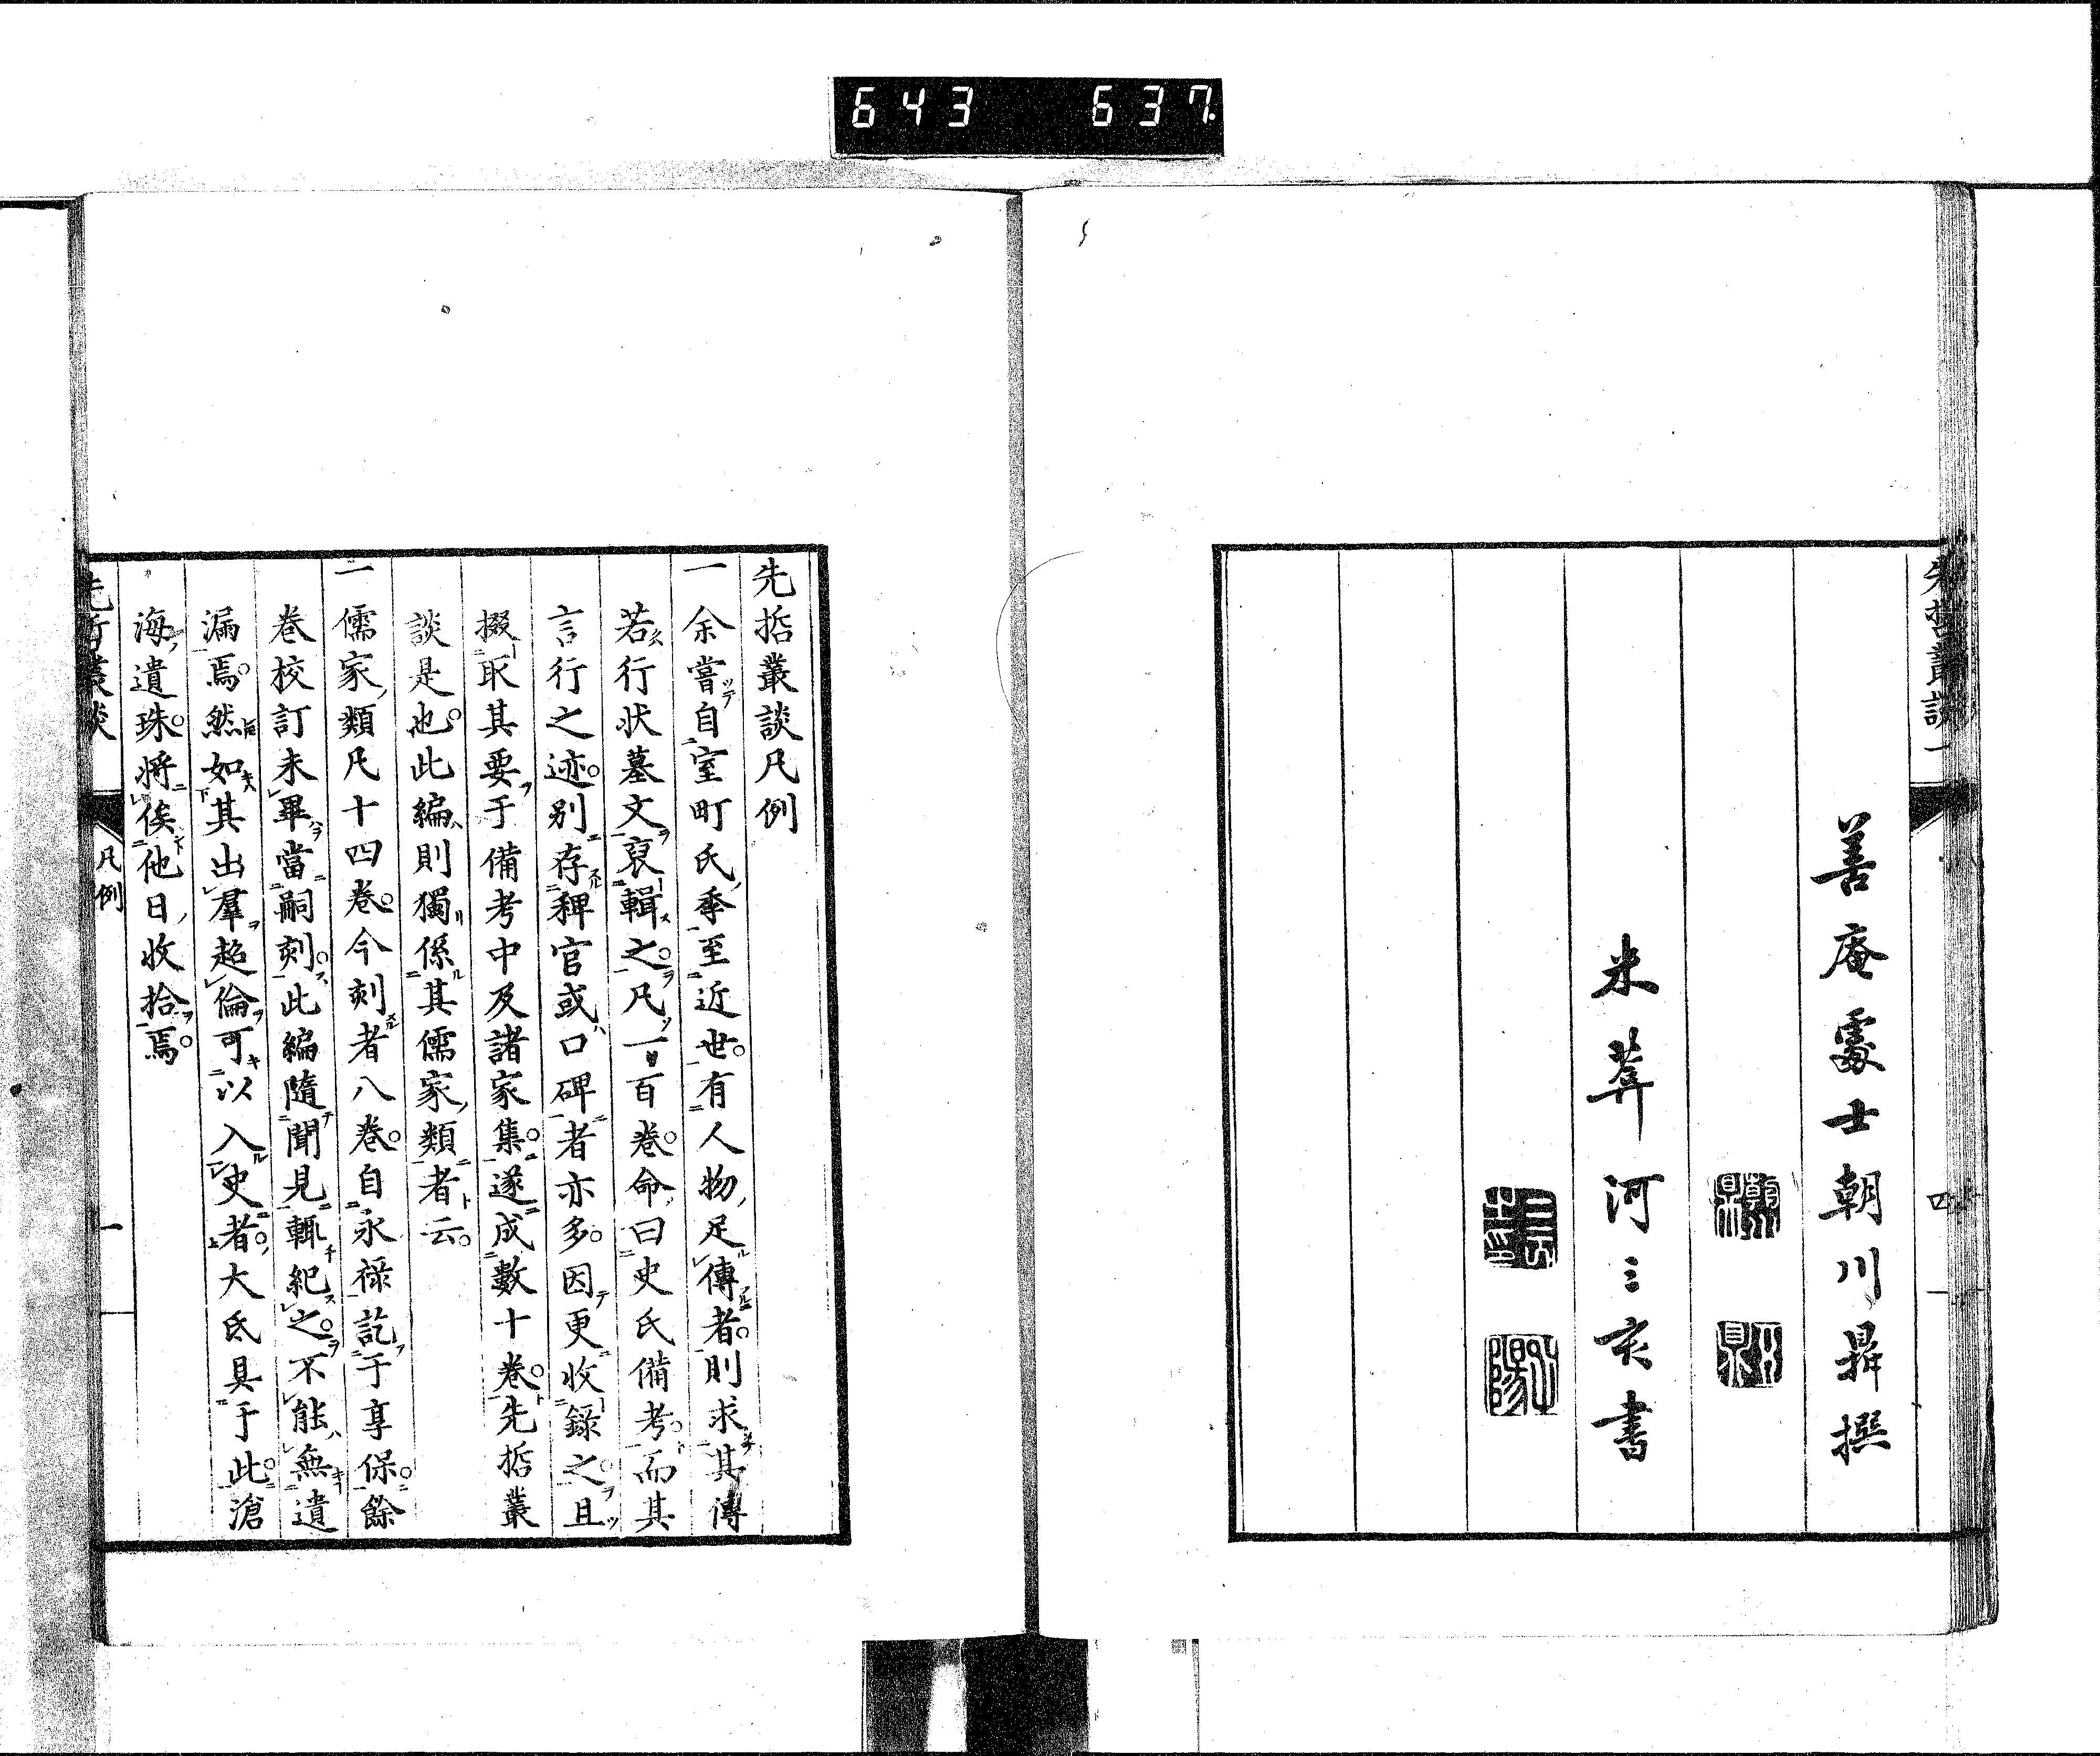 643 637
先哲叢談 一
四
善庵處士朝川鼎撰
米葊河三亥書
先哲叢談凡例
一余嘗自室町氏季至近世有人物足傳者則求其傳
若行狀墓文裒輯之凡一百卷命曰史氏備考而其
言行之迹別存稗官或口碑者亦多因更收錄之且
掇取其要于備考中及諸家集遂成數十卷先哲叢
談是也此編則獨係其儒家類者云
一儒家類凡十四卷今刻者八卷自永祿訖于享保餘
卷校訂未畢當嗣刻此編隨聞見輒紀之不能無遺
漏焉然如其出羣超倫可以入史者大氐具于此滄
海遺珠將俟他日收拾焉
先哲叢談
凡例
一